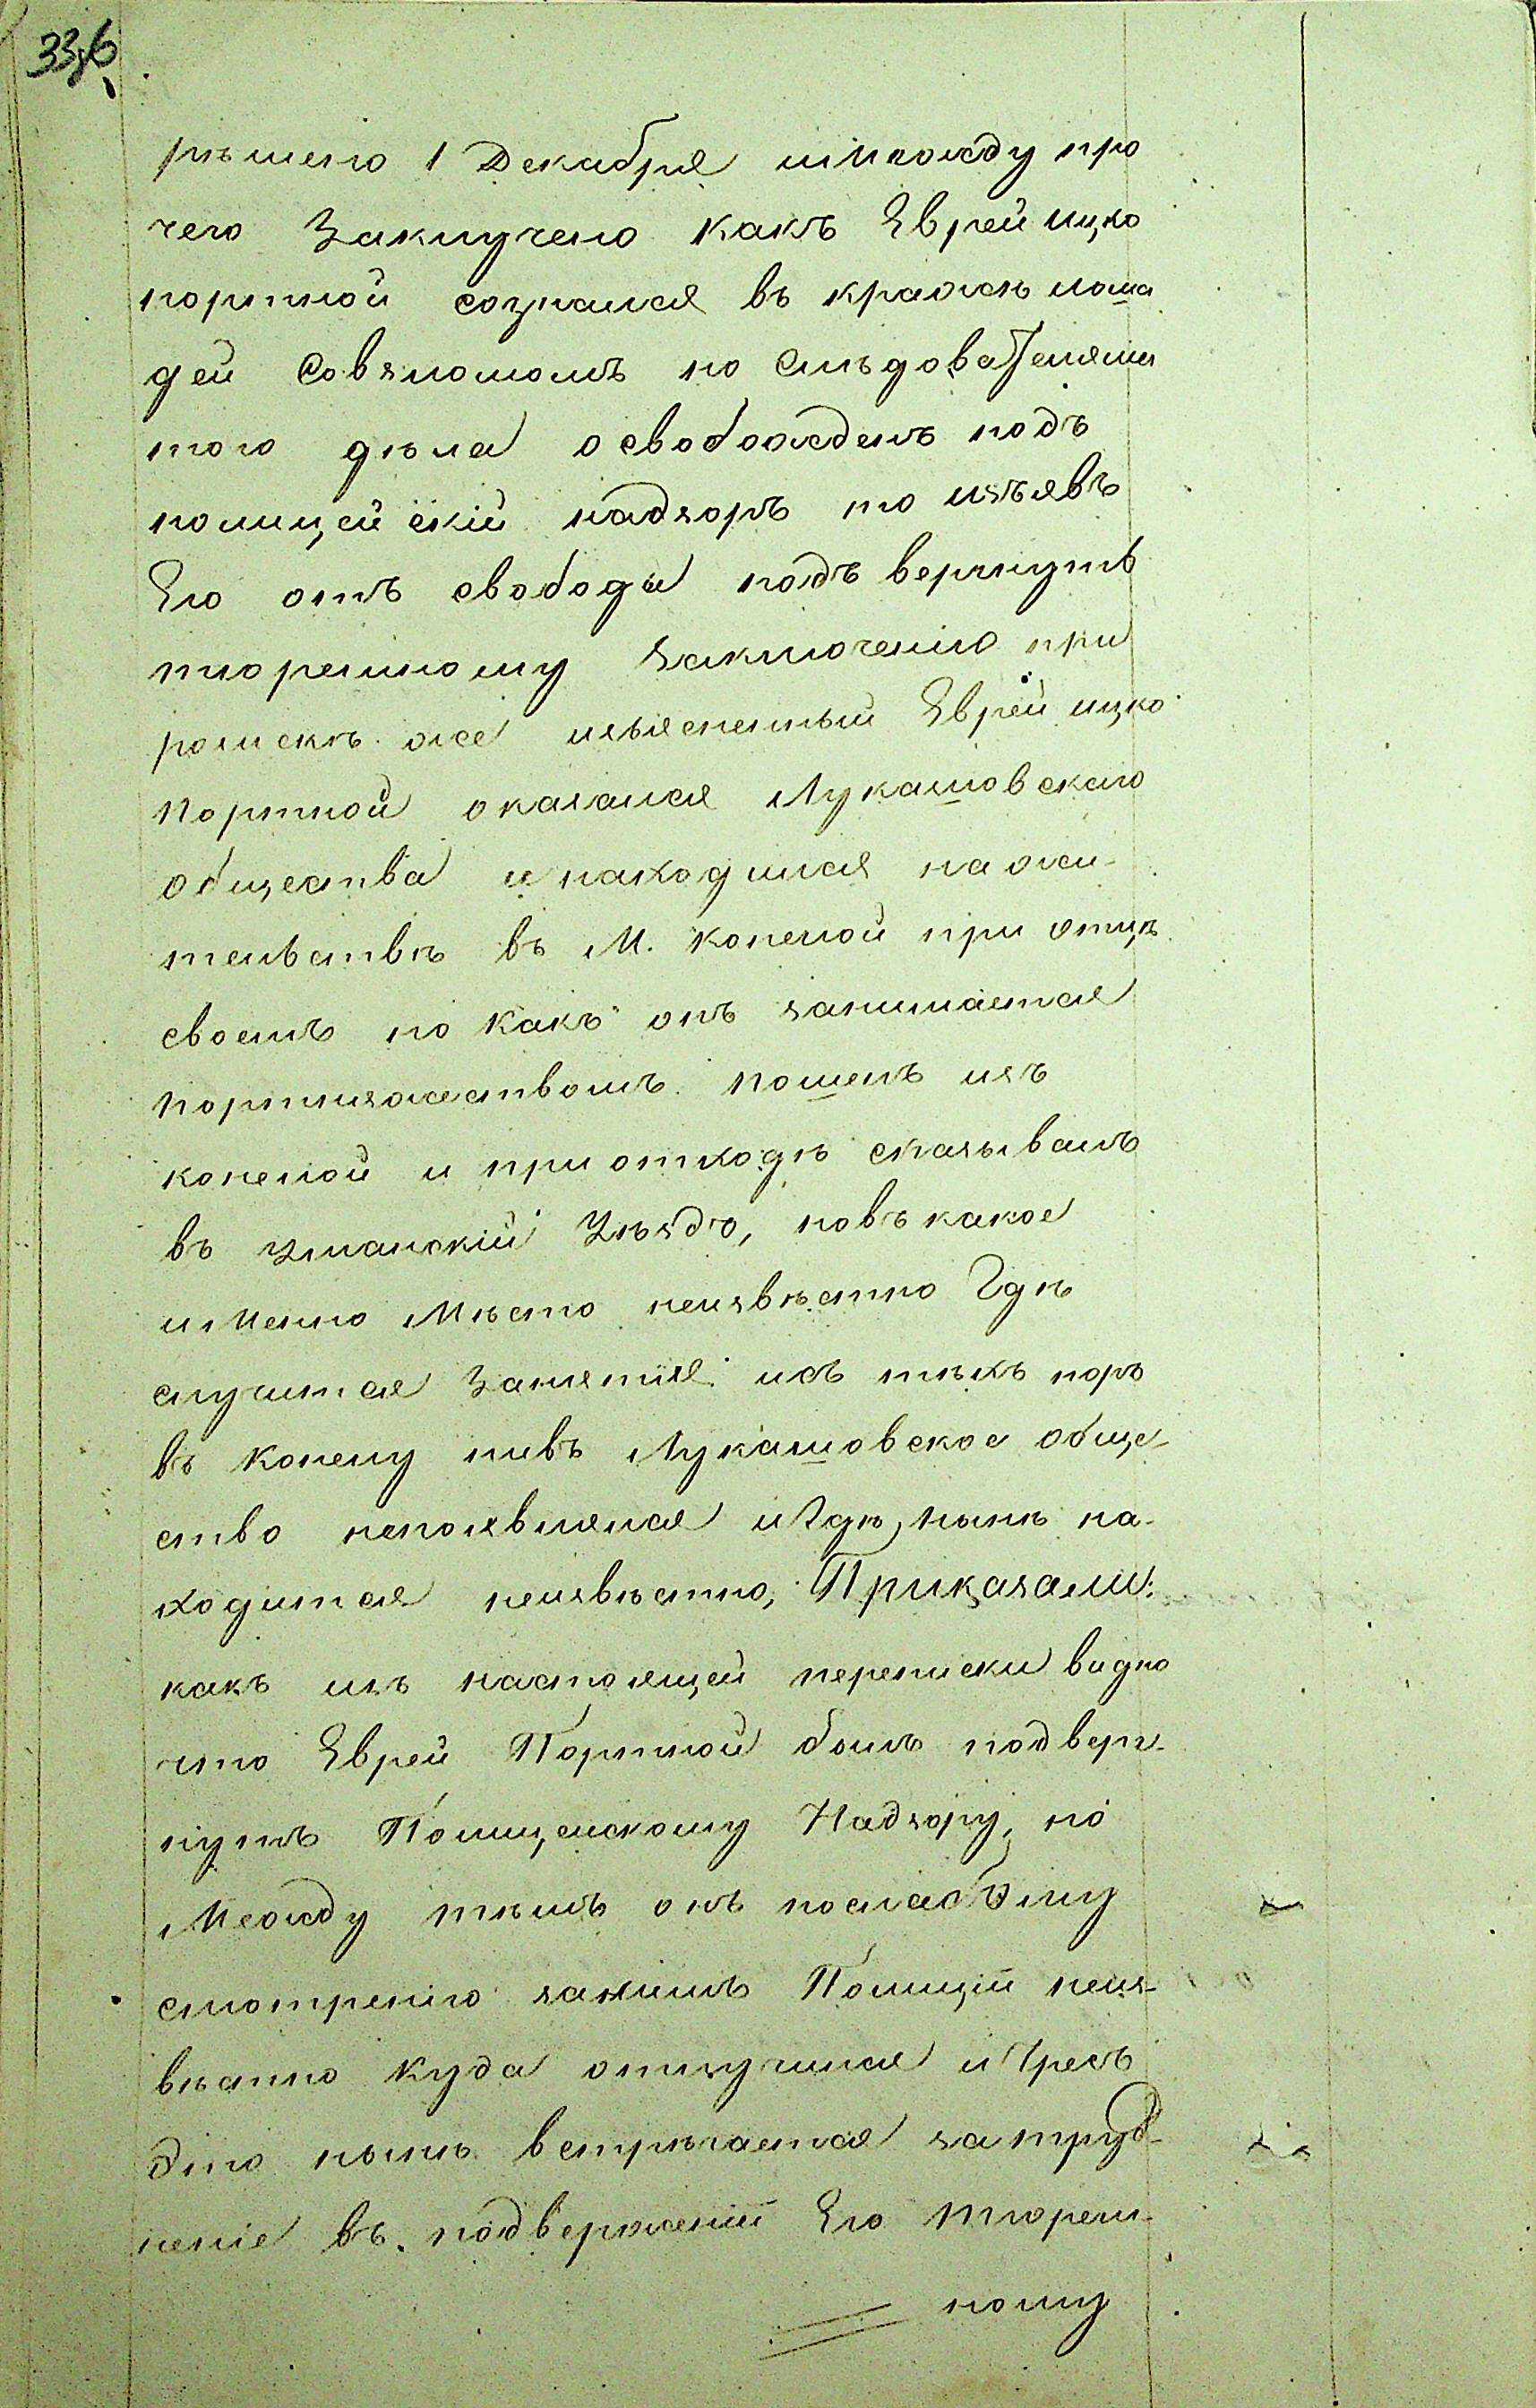 33об
рѣшено 1 Декабря имѣжду про
чего Заключено какъ Еврей ицко
портной сознался въ кражѣ лоша
дей Совзломомъ по Слѣдователями
того дѣла освобожденъ подъ
полицейскій надзоръ то изъявъ
Его отъ свободы подъ вергнуть
тюремному заключенію при
розискѣ же изъясненный Еврей ицко
портной оказался Лукашовскаго
общества и находился на жи-
тельствѣ въ М. Конелой при отцѣ
своемъ но какъ онъ занимается
портняжествомъ пошелъ изъ
конелой и при отходѣ сказывалъ
въ Уманскій Уѣздъ, новъ какое
именно Мѣсто неизвѣстно Гдѣ
случится Занятія исъ тѣхъ поръ
въ Конелу нивъ Лукашовское обще-
ство непоявлялся и Гдѣ нынѣ на-
ходится неизвѣстно, Приказали:
какъ изъ настоящей переписки видно
что Еврей Портной былъ подверг-
нутъ Полицейскому Надзору, но
Между тѣмъ онъ послабому
смотренію занимъ Полиціи неиз-
вѣстно куда отлучился и Чрезъ
Это нынѣ встрѣчается затруд-
неніе въ подверженіи Его тюрем-
ному